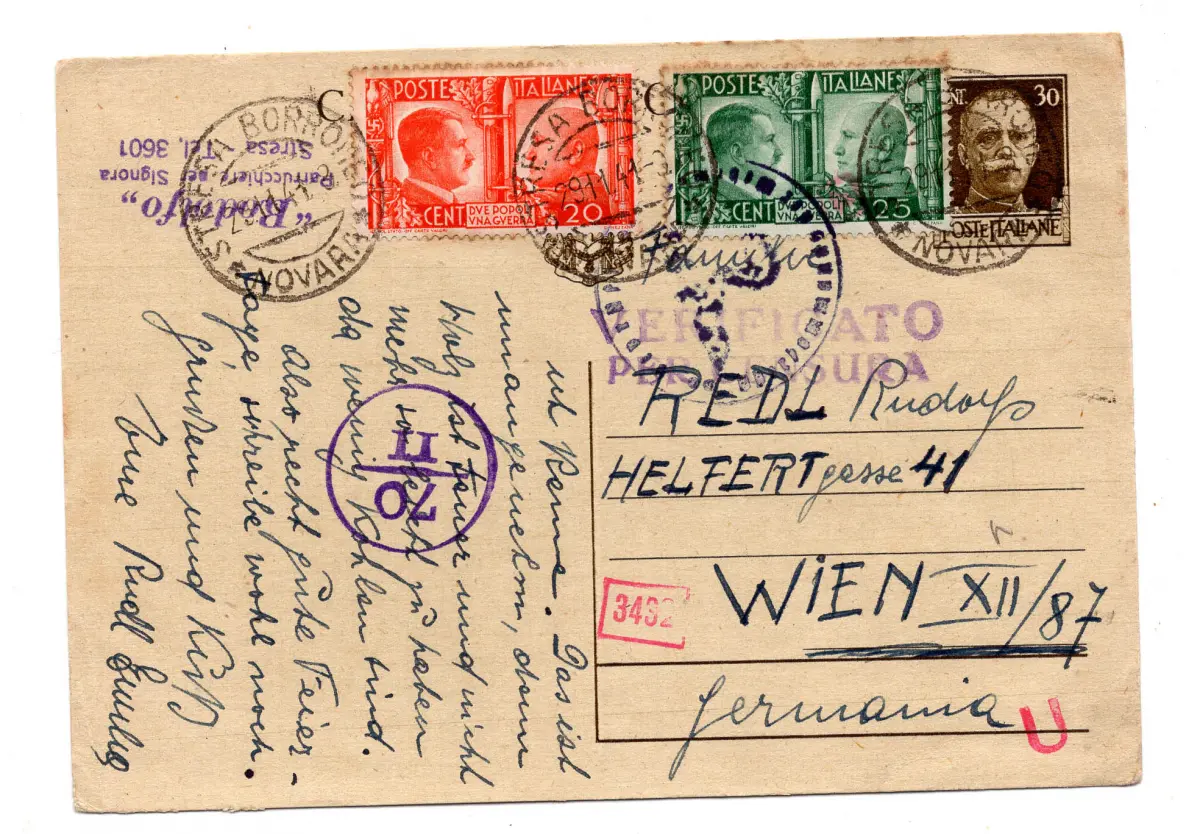 POSTE ITALIANE
CENT 20
DVE POPOLI
VNA GVERRA
POSTE ITALIANE
CENT 25
DVE POPOLI
VNA GVERRA
CENT. 30
POSTE ITALIANE
STRESA BORROMEO
NOVARA
STRESA BORROMEO
29.11.41
STRESA
NOVARA
"Rodolfo"
Parrucchiere per Signora
Stresa Tel. 3601
VERIFICATO
PER CENSURA
Familie
REDL Rudolf
HELFERTgasse 41
WIEN XII/87
Germania
3432
U
70
II
ich Renne. Das ist
unangenehm, denn
Holz ist teuer und nicht
mehr so leicht zu haben
da wenig Kohlen sind.
Also recht gute Feier-
tage schreibe wohl noch.
Grüssen und Küß
Eure Rudl